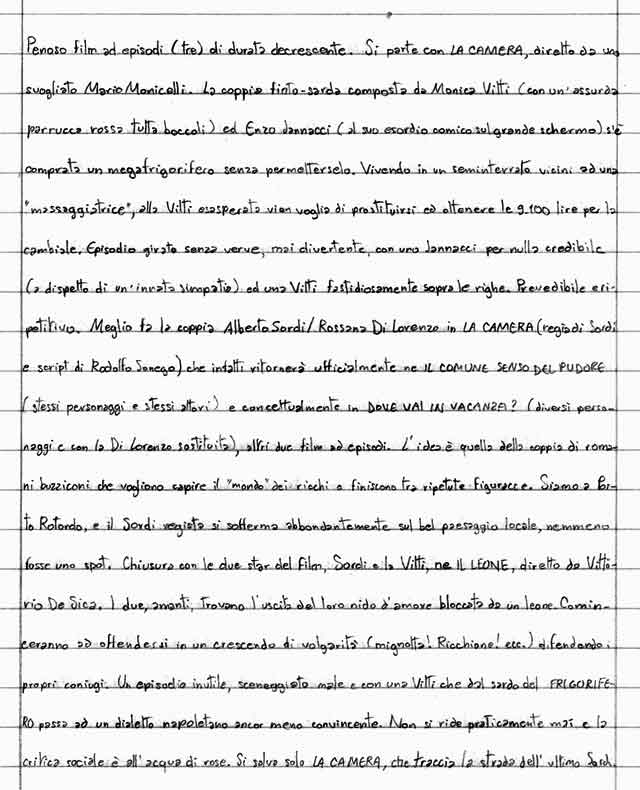 Penoso film ad episodi (tre) di durata decrescente. Si parte con LA CAMERA, diretto da uno
svogliato Mario Monicelli. La coppia finto-sarda composta da Monica Vitti (con un'assurda
parrucca rossa tutta boccoli) ed Enzo Jannacci (al suo esordio comico sul grande schermo) s'è
comprata un megafrigorifero senza permetterselo. Vivendo in un seminterrato vicini ad una
"massaggiatrice", alla Vitti esasperata vien voglia di prostituirsi ed ottenere le 9.100 lire per la
cambiale. Episodio girato senza verve, mai divertente, con uno Jannacci per nulla credibile
(a dispetto di un'innata simpatia) ed una Vitti fastidiosamente sopra le righe. Prevedibile e ri-
petitivo. Meglio fa la coppia Alberto Sordi/Rossana Di Lorenzo in LA CAMERA (regia di Sordi
e script di Rodolfo Sonego) che infatti ritornerà ufficialmente ne IL COMUNE SENSO DEL PUDORE
(stessi personaggi e stessi attori) e concettualmente in DOVE VAI IN VACANZA? (diversi perso-
naggi e con la Di Lorenzo sostituita), altri due film ad episodi. L'idea è quella della coppia di roma-
ni buzziconi che vogliono capire il "mondo" dei ricchi e finiscono tra ripetute figuracce. Siamo a Por-
to Rotondo, e il Sordi regista si sofferma abbondantemente sul bel paesaggio locale, nemmeno
fosse uno spot. Chiusura con le due star del film, Sordi e la Vitti, ne IL LEONE, diretto da Vitto-
rio De Sica. I due, amanti, trovano l'uscita del loro nido d'amore bloccata da un leone. Comin-
ceranno ad offendersi in un crescendo di volgarità (mignotta! Ricchione! ecc.) difendendo i
propri coniugi. Un episodio inutile, sceneggiato male e con una Vitti che dal sardo del FRIGORIFE-
RO passa ad un dialetto napoletano ancor meno convincente. Non si ride praticamente mai e la
critica sociale è all'acqua di rose. Si salva solo LA CAMERA, che traccia la strada dell'ultimo Sordi.